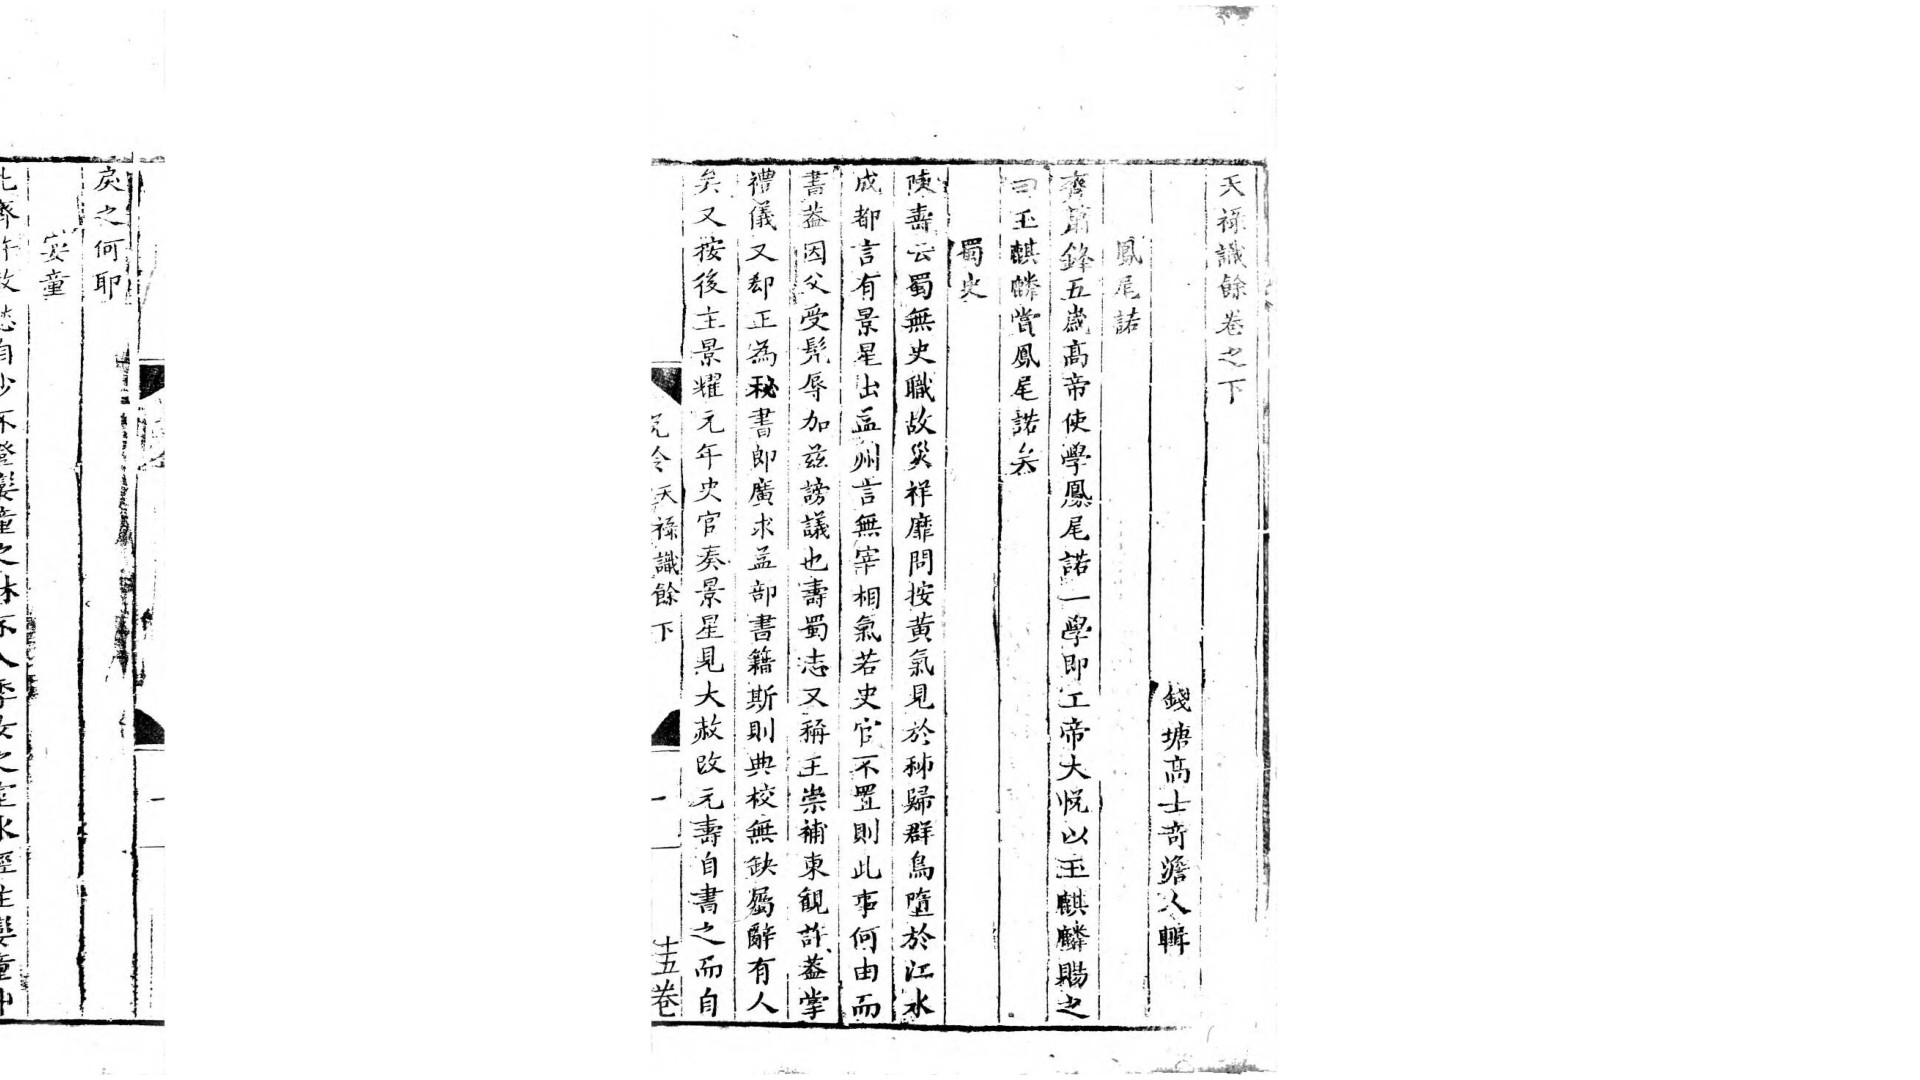 天祿識餘卷之下
錢塘高士奇澹人輯
鳳尾諾
齊蕭鋒五歲高帝使學鳳尾諾一學即工帝大悅以玉麒麟賜之
曰玉麒麟賞鳳尾諾矣
蜀史
陳壽云蜀無史職故災祥靡問按黃氣見於秭歸群鳥墮於江水
成都言有景星出益州言無宰相氣若史官不置則此事何由而
書蓋因父受髡辱加茲謗議也壽蜀志又稱王崇補東觀許蓋掌
禮儀又却正為秘書郎廣求益部書籍斯則典校無缺屬辭有人
矣又按後主景耀元年史官奏景星見大赦改元壽自書之而自
說鈴 天祿識餘 下 一 十五卷
戾之何耶
妾童